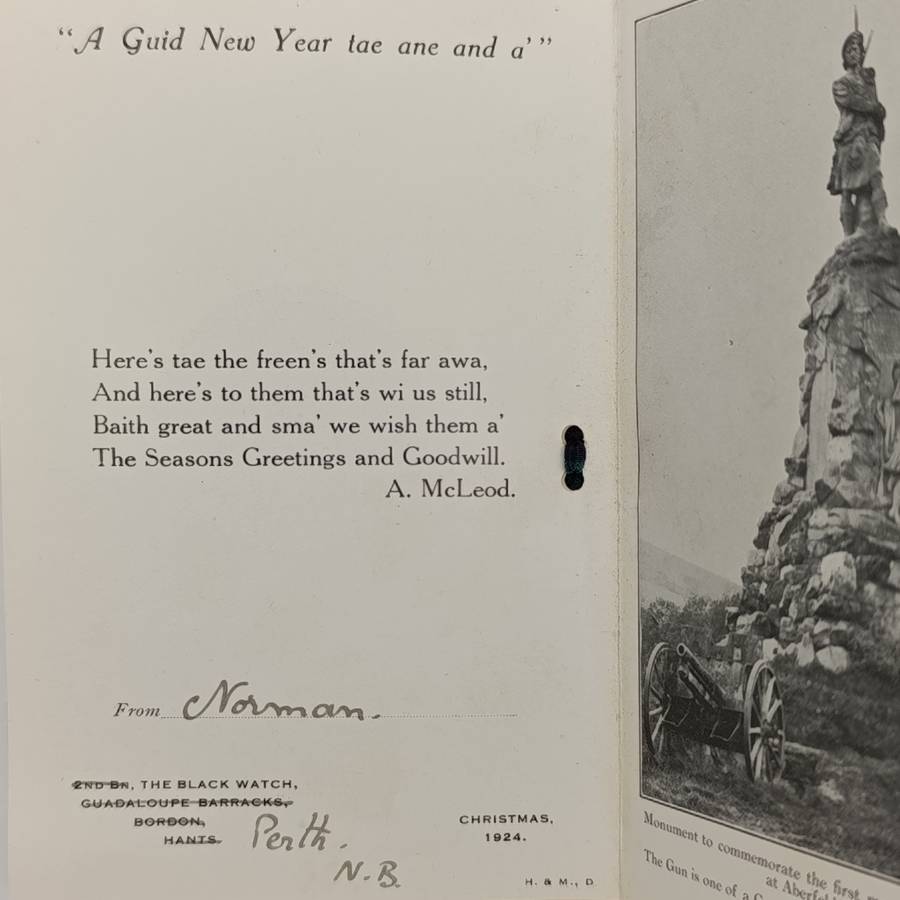 “A Guid New Year tae ane and a’”
Here's tae the freen's that's far awa,
And here's to them that's wi us still,
Baith great and sma' we wish them a'
The Seasons Greetings and Goodwill.
A. McLeod.
From Norman.
2ND BN, THE BLACK WATCH,
GUADALOUPE BARRACKS,
BORDON,
HANTS.
Perth.
N.B.
CHRISTMAS,
1924.
H. & M., D
Monument to commemorate the first
at
The Gun is one of a